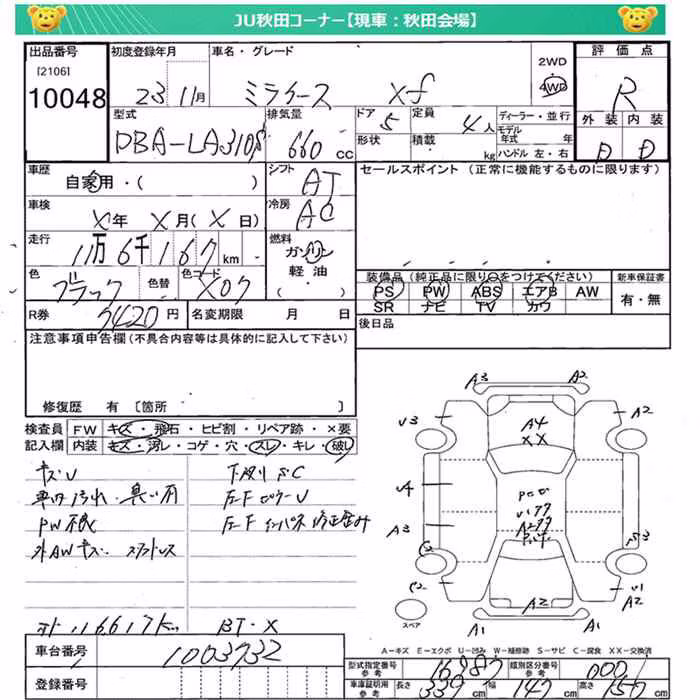 JU秋田コーナー【現車：秋田会場】
出品番号 初度登録年月 車名・グレード 2WD 評価点
[2106] 10048 23 11月 ミライース Xf 4WD R
型式 排気量 ドア 定員 ディーラー・並行 外装 内装
DBA-LA310S 660 CC 5 4人 モデル年式 年 D D
形状 積載 kg ハンドル 左・右
車歴 シフト セールスポイント (正常に機能するものに限ります)
自家用・( ) AT
車検 冷房
X年 X月(X日) AC
走行 燃料
11万6千167km ガソリン
軽油
( )
色 色替 色コード 装備品(純正品に限り○をつけてください) 新車保証書
ブラック X07 PS PW ABS エアB AW 有・無
SR ナビ TV カワ
R券 7420円 名変期限 月 日 後日品
注意事項申告欄(不具合内容等は具体的に記入して下さい)
修復歴 有 [箇所 ]
検査員 FW キズ・飛石・ヒビ割・リペア跡・×要
記入欄 内装 キズ・汚レ・コゲ・穴・スレ・キレ・破レ
キズU 下廻りSC
車内汚れ・臭い有
PW不良
外AWキズ スタッドレス
116617km BT・X
A3 A2
U3 A4 A2
XX
U4
A3
A2
C2 U1 A2
A1 A1
スペア
A-キズ E-エクボ U-凹み W-補修跡 S-サビ C-腐食 XX-交換済
車台番号 1003732
型式指定番号 参考 16987 類別区分番号 参考 0001
登録番号
車庫証明用 参考 長さ 339cm 幅 147cm 高さ